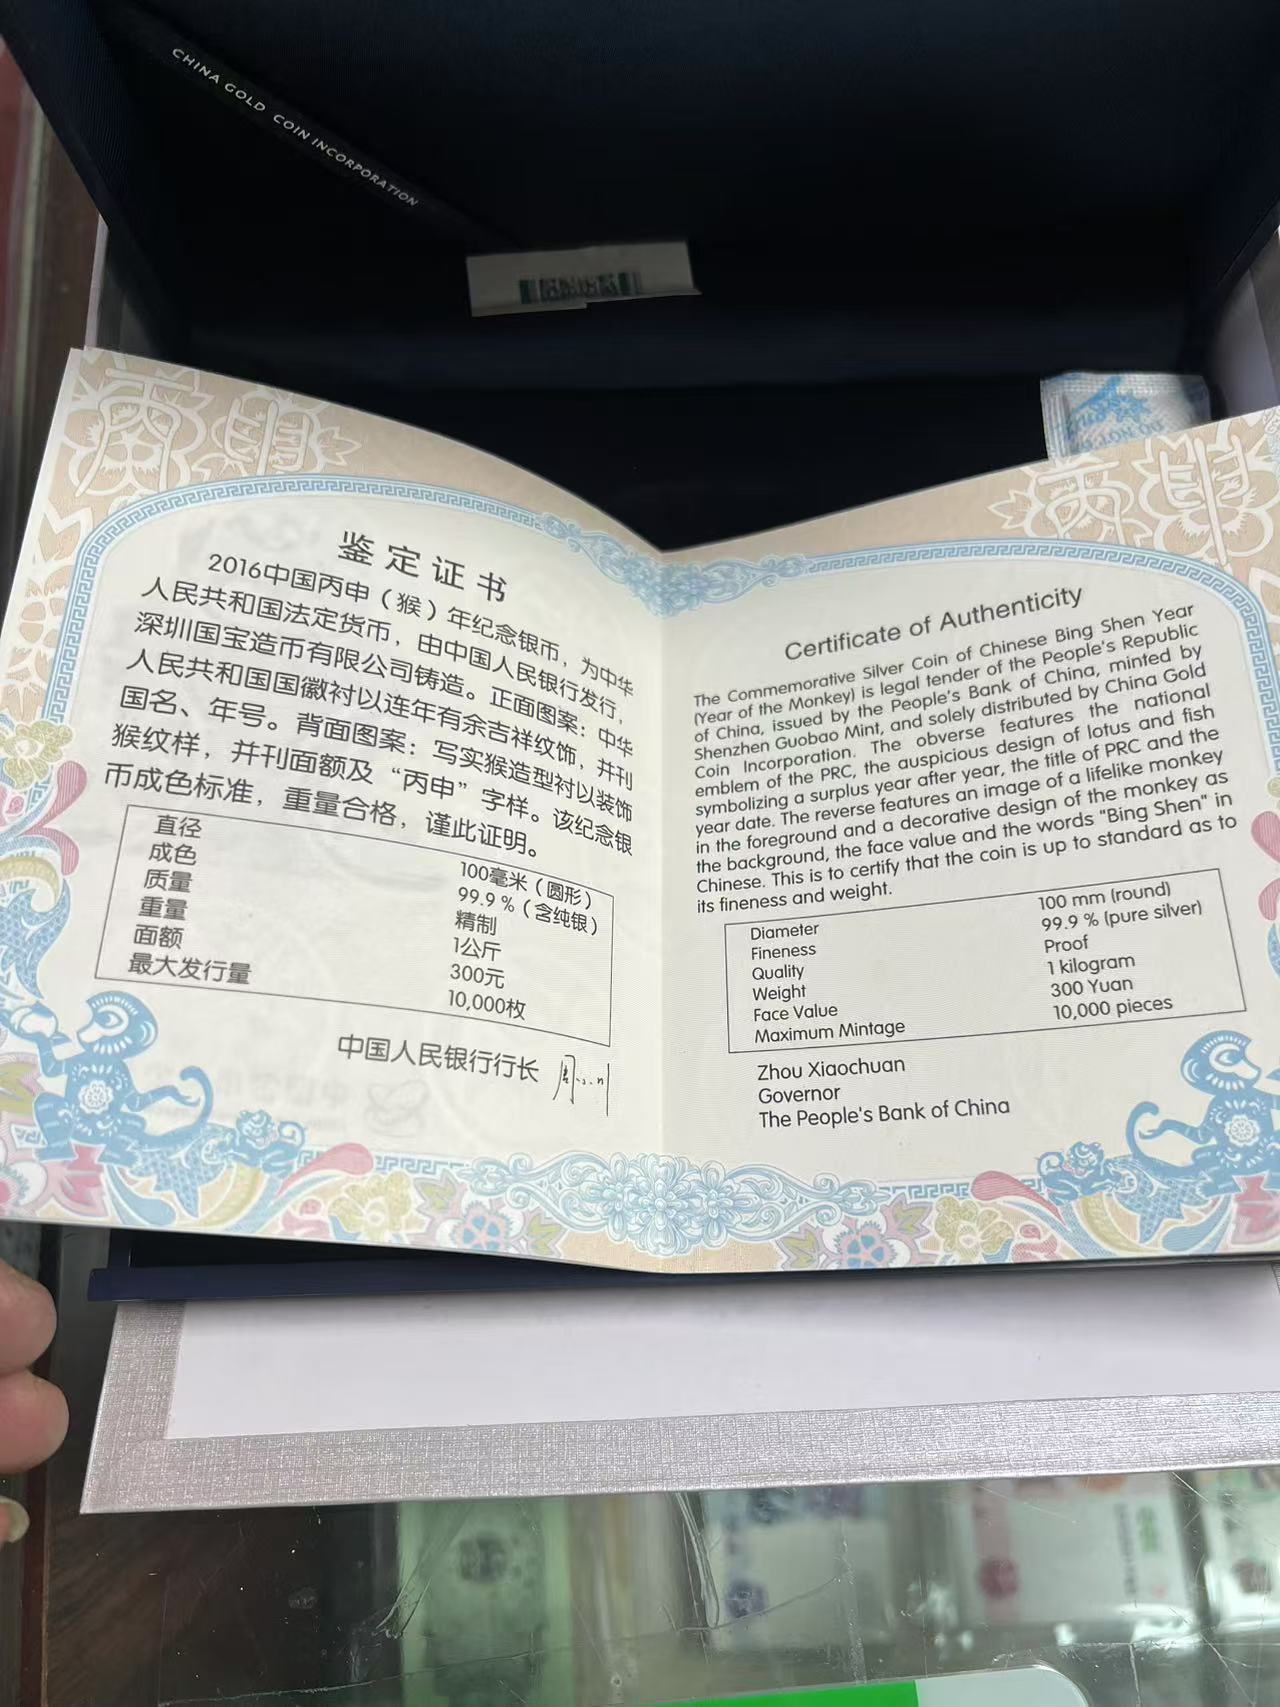 CHINA GOLD COIN INCORPORATION
DO NOT
鉴定证书
2016中国丙申（猴）年纪念银币，为中华
人民共和国法定货币，由中国人民银行发行，
深圳国宝造币有限公司铸造。正面图案：中华
人民共和国国徽衬以连年有余吉祥纹饰，并刊
国名、年号。背面图案：写实猴造型衬以装饰
猴纹样，并刊面额及“丙申”字样。该纪念银
币成色标准，重量合格，谨此证明。
直径 100毫米（圆形）
成色 99.9 %（含纯银）
质量 精制
重量 1公斤
面额 300元
最大发行量 10,000枚
中国人民银行行长
Certificate of Authenticity
The Commemorative Silver Coin of Chinese Bing Shen Year
(Year of the Monkey) is legal tender of the People's Republic
of China, issued by the People's Bank of China, minted by
Shenzhen Guobao Mint, and solely distributed by China Gold
Coin Incorporation. The obverse features the national
emblem of the PRC, the auspicious design of lotus and fish
symbolizing a surplus year after year, the title of PRC and the
year date. The reverse features an image of a lifelike monkey
in the foreground and a decorative design of the monkey as
the background, the face value and the words "Bing Shen" in
Chinese. This is to certify that the coin is up to standard as to
its fineness and weight.
Diameter 100 mm (round)
Fineness 99.9 % (pure silver)
Quality Proof
Weight 1 kilogram
Face Value 300 Yuan
Maximum Mintage 10,000 pieces
Zhou Xiaochuan
Governor
The People's Bank of China